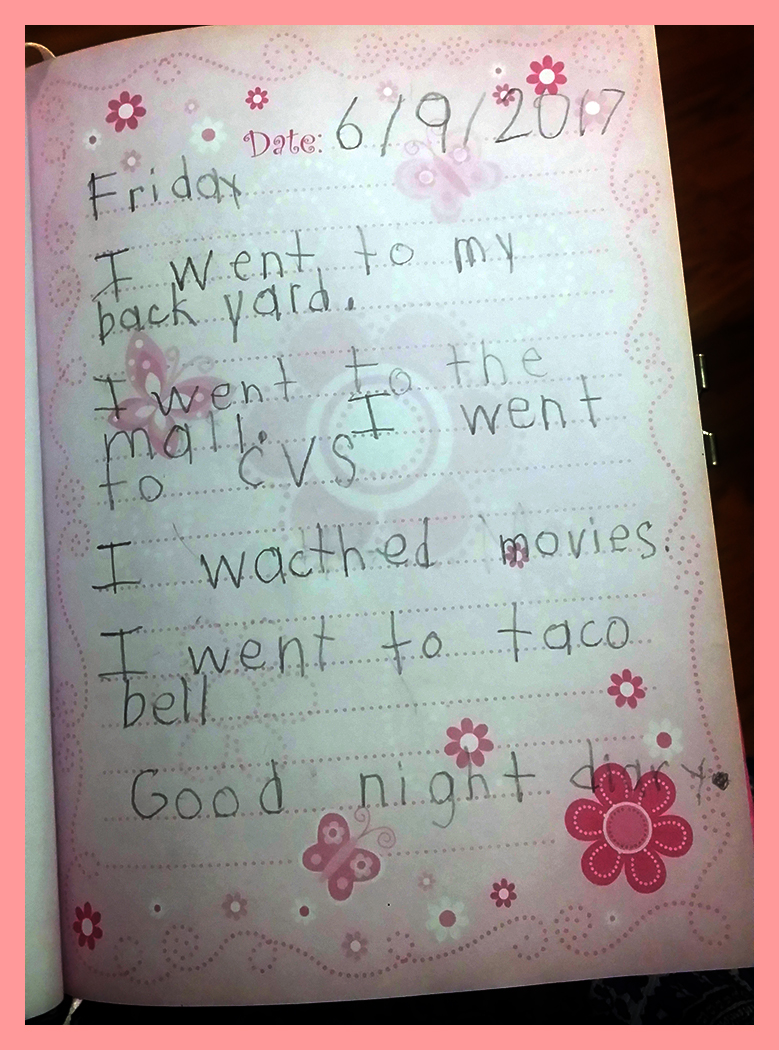 Date: 6/9/2017
Friday
I went to my
back yard.
I went to the
mall. I went
to CVS
I wacthed movies.
I went to taco
bell
Good night diary.